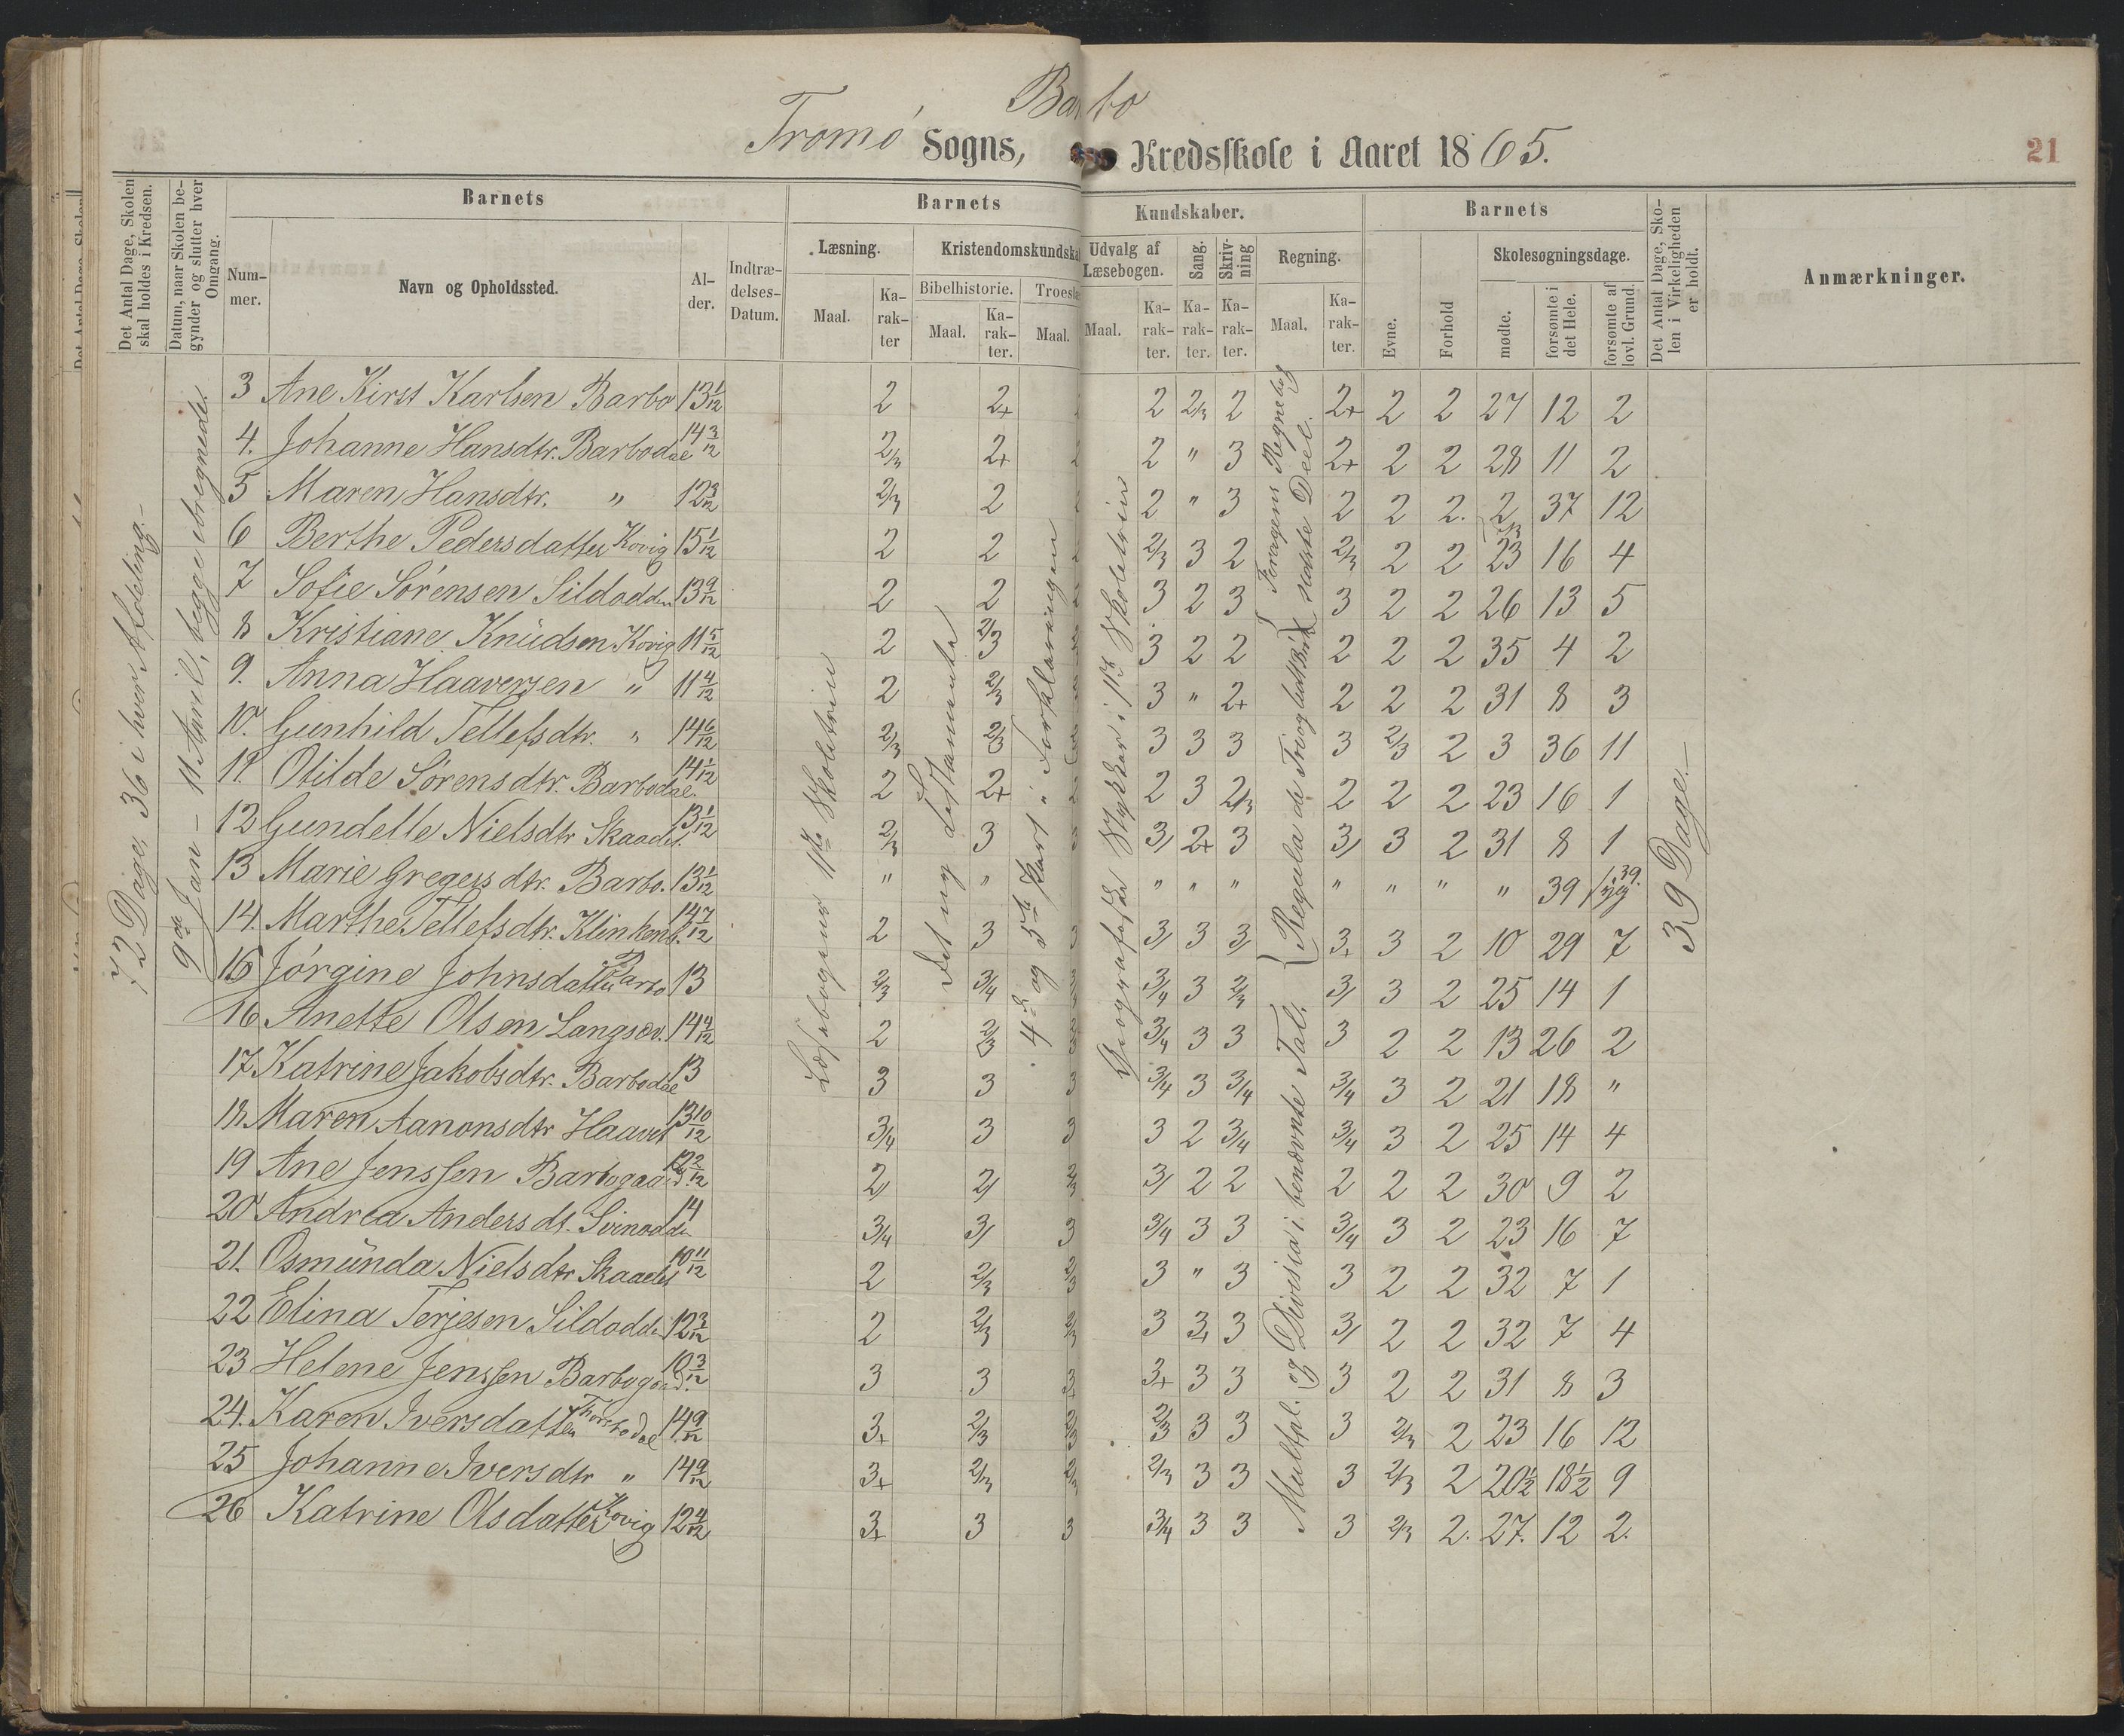 Barbo
Tromø Sogns, Kredsskole i Aaret 1865.
21
Det Antal Dage, Skolen skal holdes i Kredsen.
Datum, naar Skolen begynder og slutter hver Omgang.
Barnets
Barnets
Kundskaber.
Barnets
Det Antal Dage, Skolen i Virkeligheden er holdt.
Anmærkninger.
Nummer.
Navn og Opholdssted.
Alder.
Indtrædelses-Datum.
Læsning.
Kristendomskundska
Udvalg af Læsebogen.
Sang.
Skrivning
Regning.
Evne.
Forhold
Skolesøgningsdage.
Maal.
Karakter
Bibelhistorie.
Troes
Maal.
Karakter.
Maal.
Maal.
Karakter.
Karakter.
Karakter.
Maal.
Karakter.
mødte.
forsømte i det Hele.
forsømte af lovl. Grund.
72 Dage, 36 i hver Afdeling.-
9de Jan - 11 April, begge iberegnede.
Læsebogens 11te Skoletrin
Det nye Testamente
4de og 5te Part i Forklaringen
Geografiske Stykker i 11te Skoletrin
Regnebog sidste Deel.
Regula de Tri og ludtBrök
Multpl. og Division i benævnte Tal.
39 Dage.-
3 Ane Kirst Karlsen Barbo 13 1/12 2 2+ 2 2/3 2 2+ 2 2 27 12 2
4. Johanne Hansdtr. Barbodal 14 3/12 2/3 2+ 2 " 3 2+ 2 2 28 11 2
5 Maren Hansdtr. " 12 3/12 2/3 2 2 " 3 2 2 2. 2 37 12
6 Berthe Pedersdatter Kovig 15 1/12 2 2 2/3 3 2 2/3 2 2 23 16 4
7 Sofie Sørensen Sildodden 13 9/12 2 2 3 2 3 3 2 2 26 13 5
8 Kristiane Knudsen Kovig 11 5/12 2 2/3 3 2 2 2 2 2 35 4 2
9. Anna Haaversen " 11 4/12 2 2/3 3 " 2+ 2 2 2 31 8 3
10. Gunhild Tellefsdtr. " 14 6/12 2/3 2/3 3 3 3 3 2/3 2 3 36 11
11. Otilde Sørensdtr. Barbodal 14 1/12 2 2+ 2 3 2/3 2 2 2 23 16 1
12 Gundelle Nielsdtr Skaadel 13 1/12 2/3 3 3/ 2+ 3 3/ 3 2 31 8 1
13 Marie Gregersdtr. Barbo. 13 1/12 " " " " " " " " " 39 39. syg
14. Marthe Tellefsdtr. Klinkenb. 14 7/12 2 3 3/ 3 3/ 3+ 3 2 10 29 7
15 Jørgine Johnsdatter Barbo 13 2/3 3/4 3/4 3 2/3 3/ 3 2 25 14 1
16 Anette Olsen Langsæv. 14 4/12 2 2/3 3/4 3 3 3 2 2 13 26 2
17 Katrine Jakobsdtr. Barbodal 13 3 3 3 3/4 3 3/4 3/4 3 2 21 18 "
18 Maren Aanonsdtr Haavet 13 10/12 3/4 3 3 3 2 3/4 3/4 3 2 25 14 4
19 Ane Jenssen Barbogaard. 12 2/12 2/ 2/ 2/3 3/ 2 2 2 2 2 30 9 2
20 Andrea Andersdt. Svinodden 14 3/4 3/ 3 3/4 3 3 3/4 3 2 23 16 7
21. Osmunda Nielsdtr Skaadel 10 11/12 2 2/3 2/3 3 " 3 3 2 2 32 7 1
22 Elina Terjesen Sildodden 12 3/12 2 2/3 2/3 3 3+ 3 3/ 2 2 32 7 4
23 Helene Jenssen Barbogaard. 10 3/12 3 3 3+ 3+ 3 3 3 2 2 31 8 3
24. Karen Iversdatter Thorsbodal 14 9/12 3+ 2/3 2/3 2/3 3 3 3 2/3 2 23 16 12
25 Johanne Iversdtr " 14 9/12 3+ 2/3 2/3 2/3 3 3 3 2/3 2 20 1/2 18 1/2 9
26 Katrine Olsdatter Kovig 12 4/12 3+ 3 3 3/4 3 3 3 2/3 2. 27. 12 2.